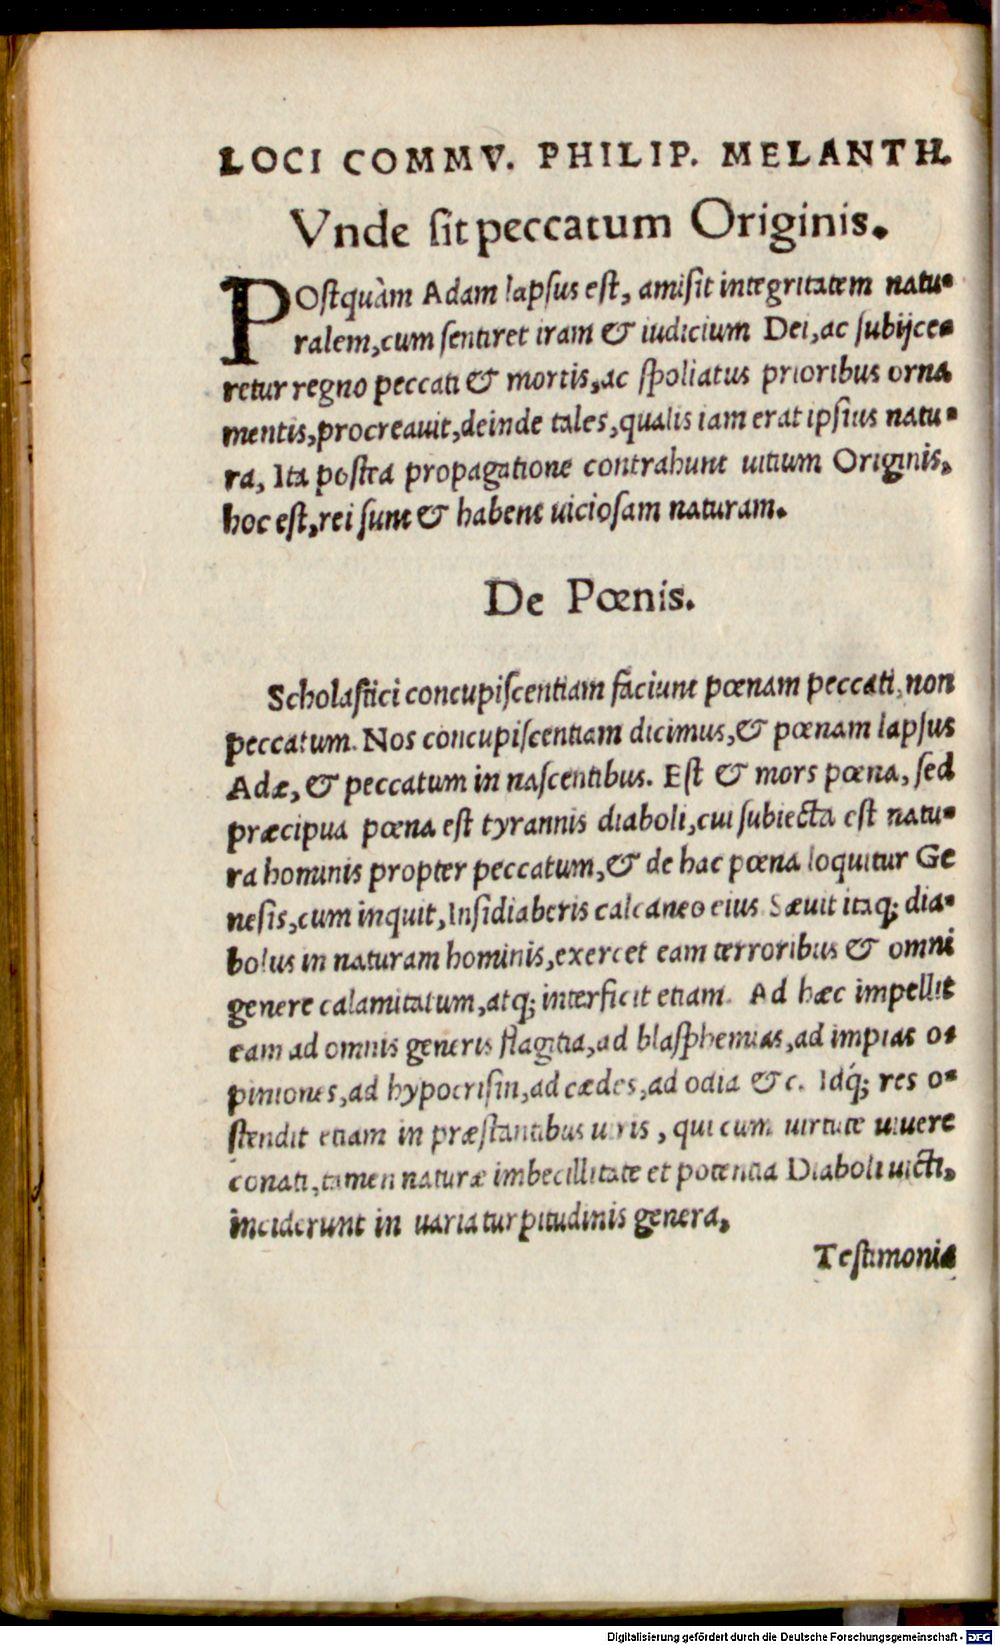 LOCI COMMV. PHILIP. MELANTH.
Vnde ſit peccatum Originis.
POſtquàm Adam lapſus eſt, amiſit integritatem natu-
ralem, cum ſentiret iram & iudicium Dei, ac ſubijce-
retur regno peccati & mortis, ac ſpoliatus prioribus orna
mentis, procreauit, deinde tales, qualis iam erat ipſius natu-
ra, Ita poſtea propagatione contrahunt uitium Originis,
hoc eſt, rei ſunt & habent uicioſam naturam.
De Pœnis.
Scholaſtici concupiſcentiam faciunt pœnam peccati, non
peccatum. Nos concupiſcentiam dicimus, & pœnam lapſus
Adæ, & peccatum in naſcentibus. Eſt & mors pœna, ſed
præcipua pœna eſt tyrannis diaboli, cui ſubiecta eſt natu-
ra hominis propter peccatum, & de hac pœna loquitur Ge
neſis, cum inquit, Inſidiaberis calcaneo eius Sæuit itaq; dia-
bolus in naturam hominis, exercet eam terroribus & omni
genere calamitatum, atq; interficit etiam. Ad hæc impellit
eam ad omnis generis flagitia, ad blaſphemias, ad impias o-
piniones, ad hypocriſin, ad cædes, ad odia &c. Idq́; res o-
ſtendit etiam in præſtantibus uiris, qui cum uirtute uiuere
conati, tamen naturæ imbecillitate et potentia Diaboli uicti,
inciderunt in uaria turpitudinis genera,
Teſtimonia
Digitalisierung gefördert durch die Deutsche Forschungsgemeinschaft - DFG